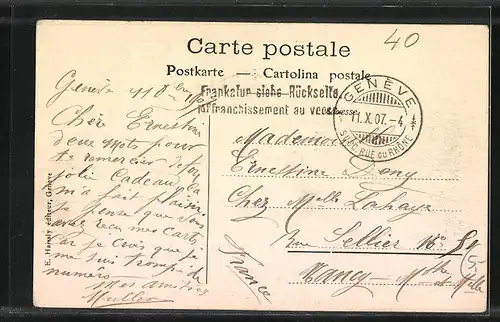 40
Carte postale
Postkarte — Cartolina postale
Frankatur siehe Rückseite
Affranchissement au verso
GENÈVE
11.X.07.-4
SUCC. RUE DU RHÔNE
Genève 11 8bre
Chère Ernestine
deux mots pour
te remercier de ton
joli Cadeau Ça
m'a fait plaisir
je pense que vous
avez reçu mes Cartes
Car je crois que je
me suis trompé de
numéro
Mes amitiés
Muller
Mademoi
Ernestine
Chez Melle Lahaye
Rue Sellier No 89
Nancy - Mthe
et Melle
France
E. Hanoly éditeur, Genève